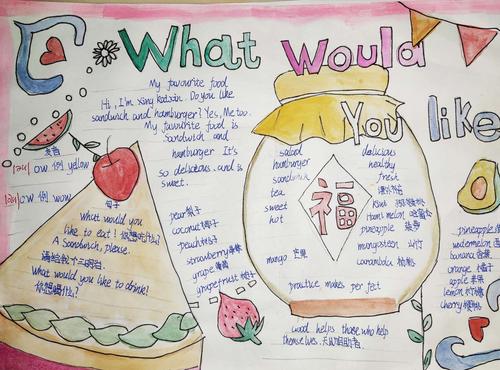 What Would
You like
My favourite food
Hi, I'm Xing kaixin. Do you like
sandwich and hamburger? Yes, Me too.
My favourite food is
sandwich and
hamburger It's
so delicious. and is
sweet.
发音
ow 例 yellow
ow 例 wow
句子
what would you
like to eat? 你想吃什么?
A Sandwich, please.
请给我个三明治.
What would you like to drink!
你想喝什么?
pear 梨子
coconut 椰子
peach 桃子
strawberry 草莓
grape 葡萄
grapefruit 柚子
salad
hamburger
sandwich
tea
sweet
hot
mango 芒果
delicious
healthy
fresh
课外
Kiwi
Hami melon 哈密瓜
pineapple
mangosteen 山竹
carambola 杨桃
福
practice makes per fect
God helps those who help
themselves. 天助自助者.
pineapple
watermelon
banana 香蕉
orange 橘子
apple 苹果
lemon 柠檬
cherry 樱桃